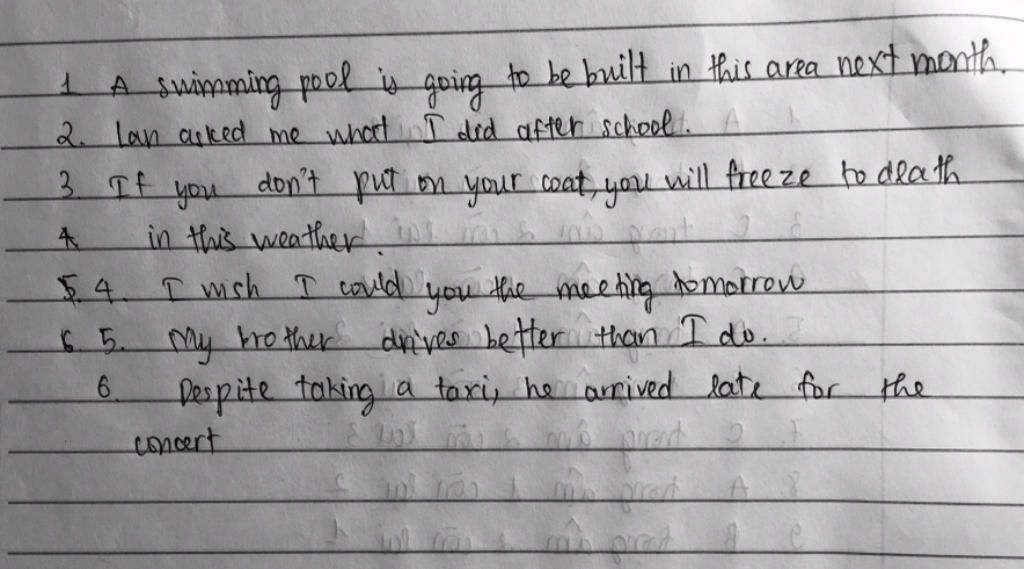 1 A swimming pool is going to be built in this area next month.
2. Lan asked me what I did after school.
3 If you don't put on your coat, you will freeze to death
4 in this weather.
5. 4. I wish I could you the meeting tomorrow
6. 5. My brother drives better than I do.
6. Despite taking a taxi, he arrived late for the
concert